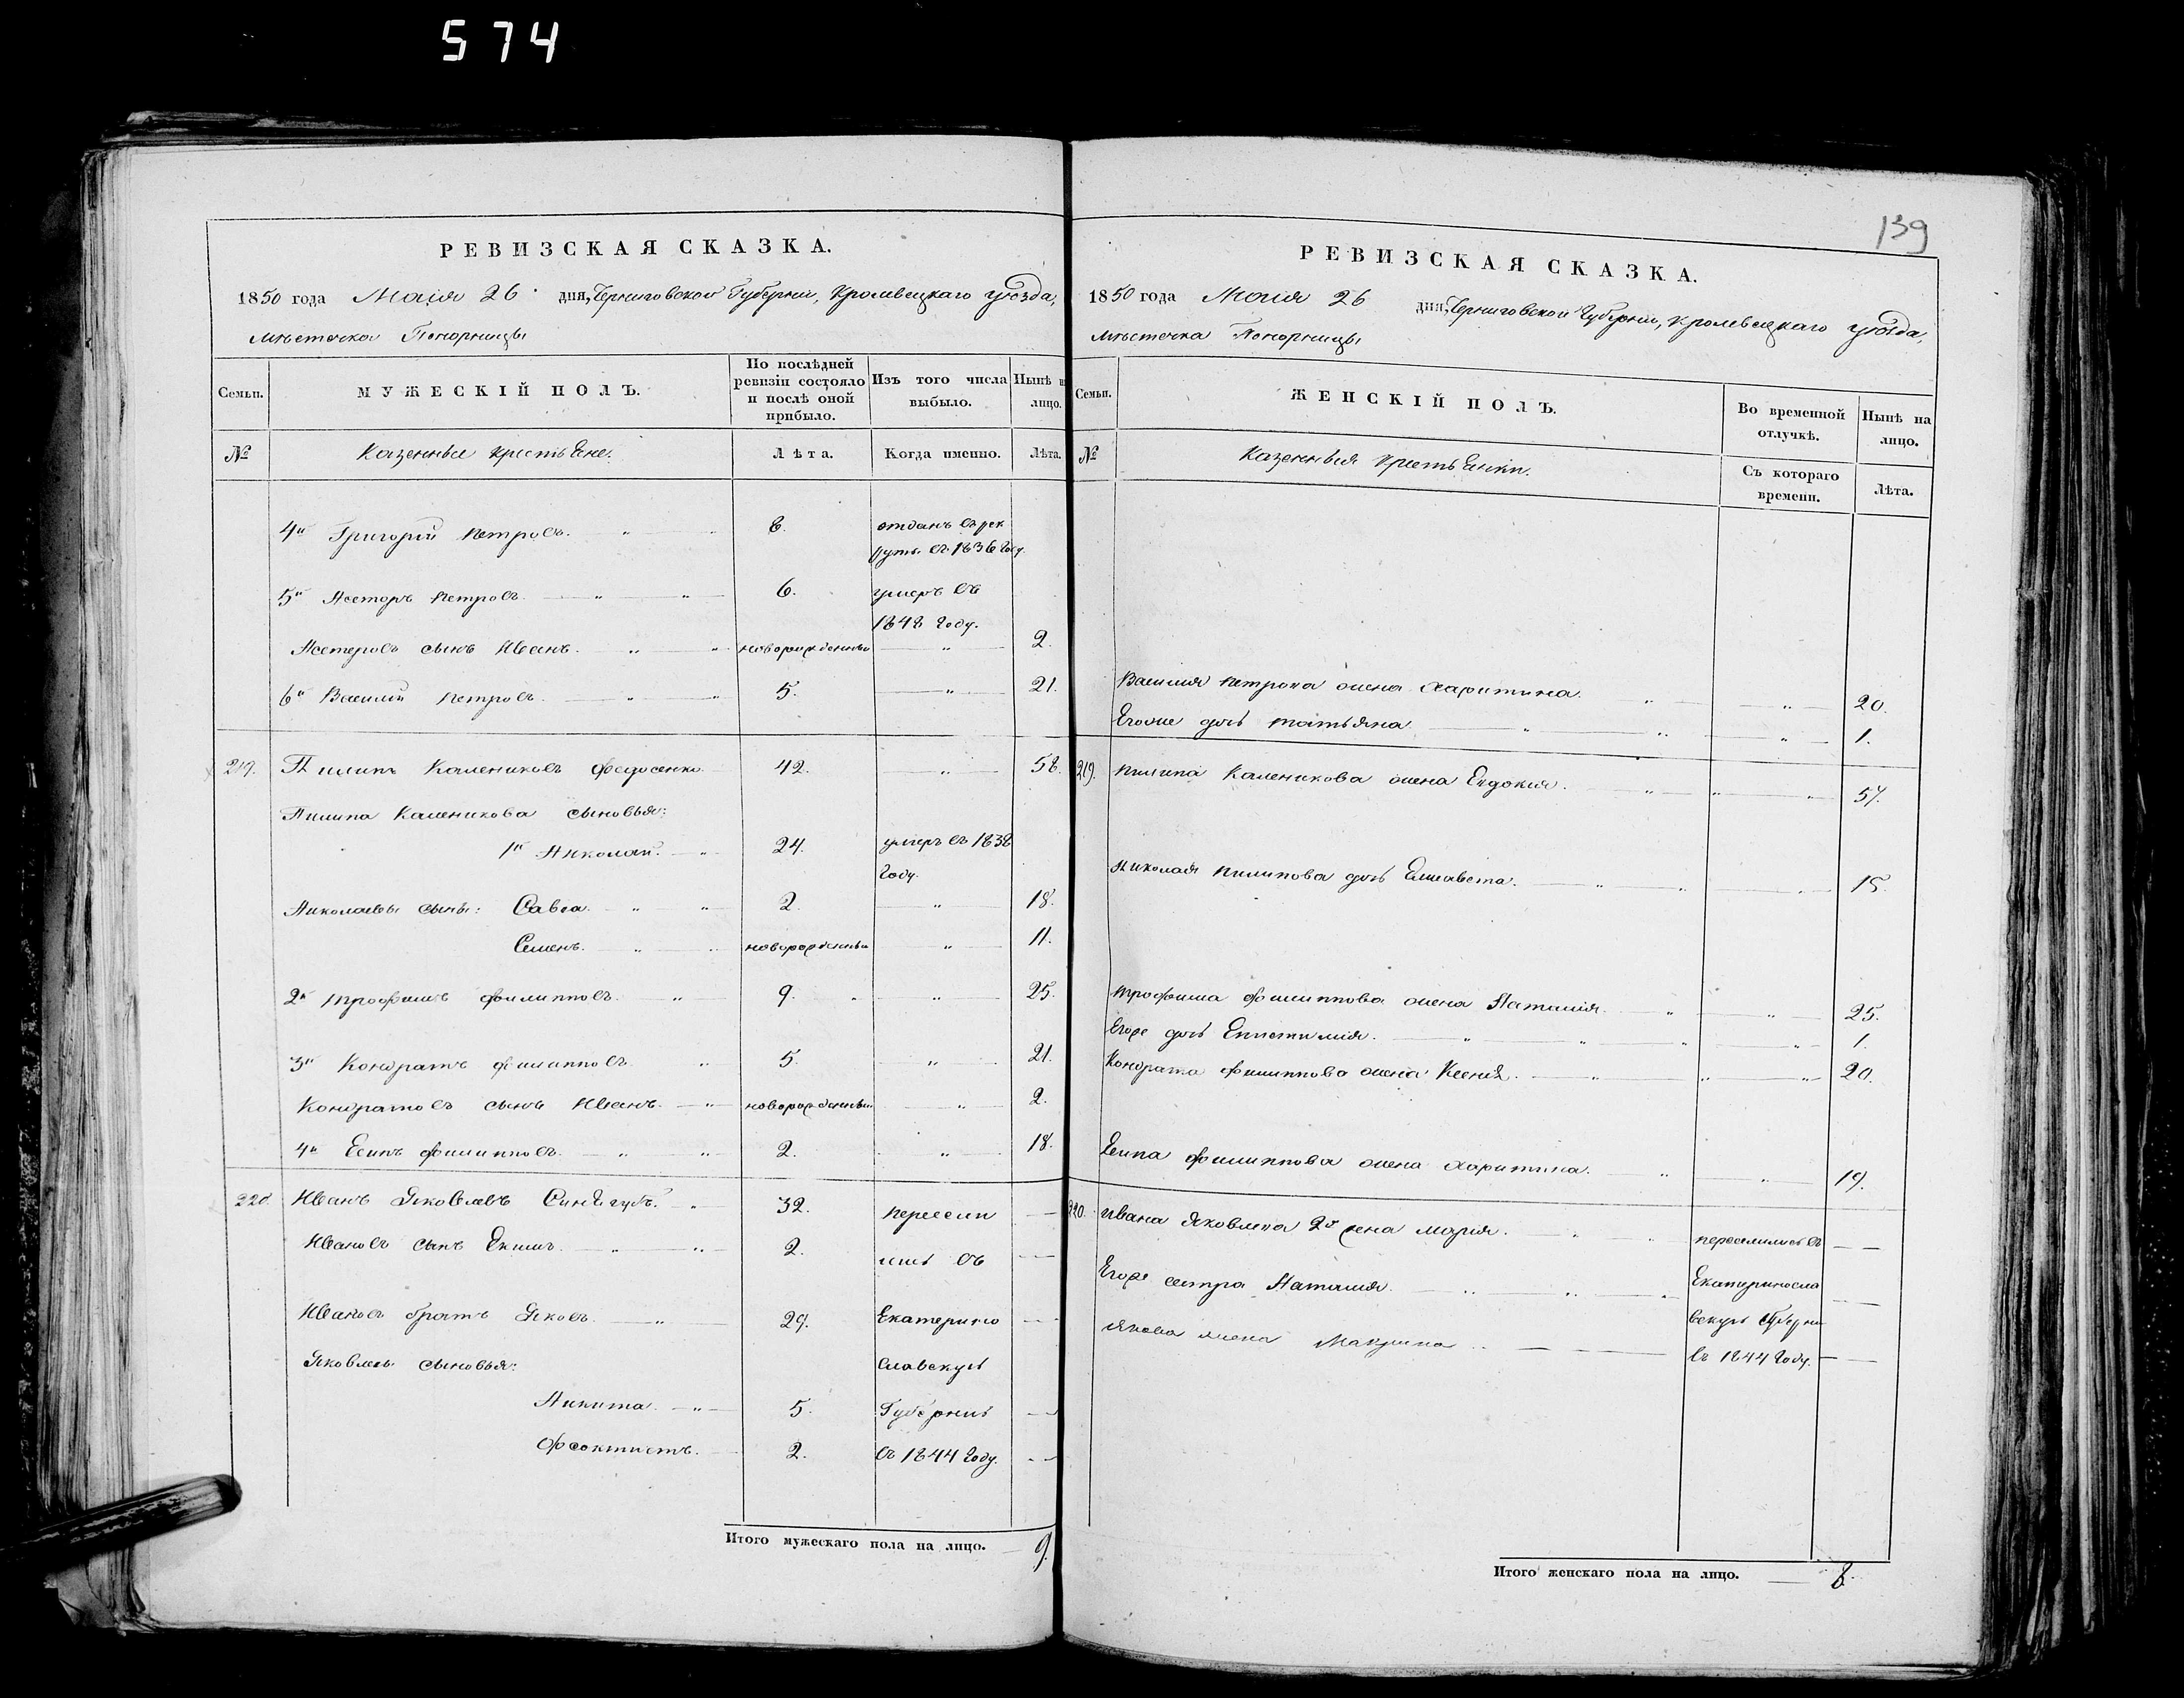 574
139
РЕВИЗСКАЯ СКАЗКА.
1850 года Маія 26 дня, Черниговской Губерніи, Кролевецкаго уѣзда,
мѣстечка Понорницы
Семьи.
МУЖЕСКІЙ ПОЛЪ.
По послѣдней ревизіи состояло и послѣ оной прибыло.
Изъ того числа выбыло.
Нынѣ н лицо.
№
Казенные крестьяне.
Лѣта.
Когда именно.
Лѣта.
4й Григорій Петровъ. 8. отданъ въ рек
руты въ 1836 году.
5й Несторъ Петровъ. 6. умеръ въ
1848 году.
Нестеровъ сынъ Иванъ. новорожденный 2.
6й Василій Петровъ. 5. 21.
219. Пилипъ Калениковъ Федосенко 42. 58.
Пилипа Каленикова сыновья:
1й Николай. 24. умеръ въ 1838
году.
Николаевы сыны: Савва. 2. 18.
Семенъ. новорожденный 11.
2й Трофимъ Филипповъ. 9. 25.
3й Кондратъ Филипповъ. 5. 21.
Кондратовъ сынъ Иванъ. новорожденный 2.
4й Есипъ Филипповъ. 2. 18.
220. Иванъ Яковлевъ 32. пересели
Ивановъ сынъ Екимъ. 2. лись въ
Ивановъ братъ Яковъ. 29. Екатерино
Яковлевы сыновья: славскую
Никита. 5. Губернію
Феоктистъ. 2. въ 1844 году.
Итого мужескаго пола на лицо. 9.
РЕВИЗСКАЯ СКАЗКА.
1850 года Маія 26 дня, Черниговской Губерніи, Кролевецкаго уѣзда,
мѣстечка Понорницы
Семьи.
ЖЕНСКІЙ ПОЛЪ.
Во временной отлучкѣ.
Нынѣ на лицо.
№
Казенныя крестьянки.
Съ котораго времени.
Лѣта.
Василия Петрова жена Харитина. 20.
Его же дочь Татьяна. 1.
219. Пилипа Каленикова жена Евдокия. 57.
Николая Пилипова дочь Елисавета. 15.
Трофима Филиппова жена Наталия. 25.
Его же дочь Епистимия. 1.
Кондрата Филиппова жена Ксения. 20.
Есипа Филиппова жена Харитина. 19.
220. Ивана Яковлева 2я жена Мария. переселились въ
Его же сестра Наталия. Екатериносла
вскую Губернію
Якова жена Макрина въ 1844 году.
Итого женскаго пола на лицо. 8.